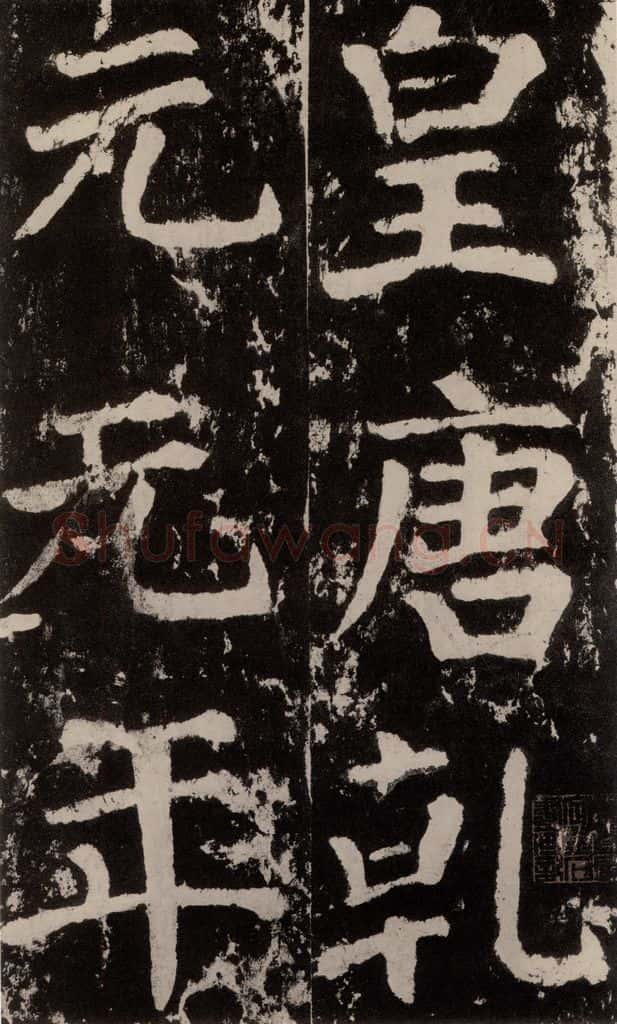 皇唐乾
元元年
Shufawang.CN